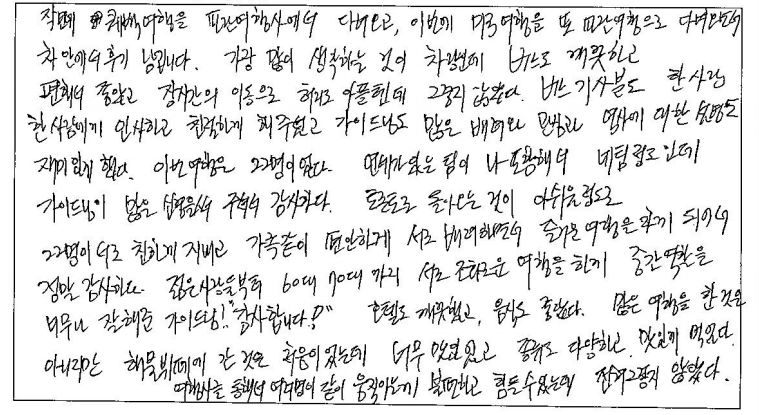 작년에 퀘백여행을 파란여행사에서 다녀오고, 이번에 미국여행을 또 파란여행으로 다녀오면서
차 안에서 후기 남깁니다. 가장 많이 생각하는 것이 차량인데 버스도 깨끗하고
편해서 좋았고 장시간의 이동으로 허리도 아플텐데 그렇지 않았다. 버스 기사분도 한사람
한사람에게 인사하고 친절하게 해주셨고 가이드님도 많은 배려와 모범과 역사에 대한 설명도
재미있게 했다. 이번여행은 22명이 었다. 연세가 있은 팀이 나 포함해서 네팀정도인데
가이드님이 많은 신경을써 주셔서 감사하다. 토론토로 돌아오는 것이 아쉬울정도로
22명이 서로 친하게 지내고 가족같이 편안하게 서로 배려하면서 즐거운 여행을 하게 되어서
정말 감사하다. 젊은사람들부터 60대 70대 까지 서로 조화로운 여행을 한게 중간역할을
너무나 잘해준 가이드님!! "감사합니다!!" 호텔도 깨끗했고, 음식도 좋았다. 많은 여행을 한 것은
아니지만 해물뷔페에 간 것은 처음이었는데 너무 맛있었고 종류도 다양하고 맛있게 먹었다.
여행사를 통해서 여러명이 같이 움직이는게 불편하고 힘들 수있는데 전혀그렇지 않았다.